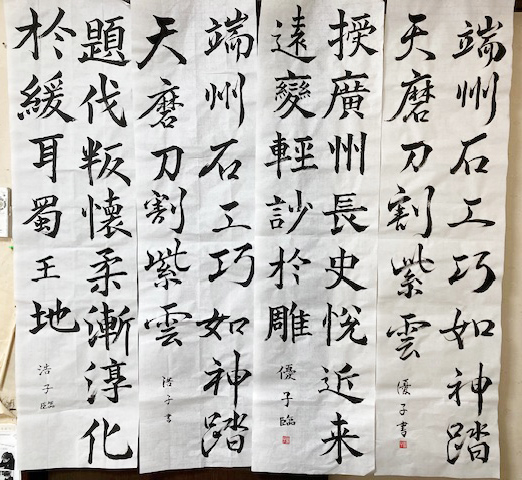 端州石工巧如神踏
天磨刀割紫雲
優子書
授廣州長史悦近来
遠變輕訬於雕
優子臨
端州石工巧如神踏
天磨刀割紫雲
浩子書
題伐叛懐柔漸淳化
於緩耳蜀王地
浩子臨